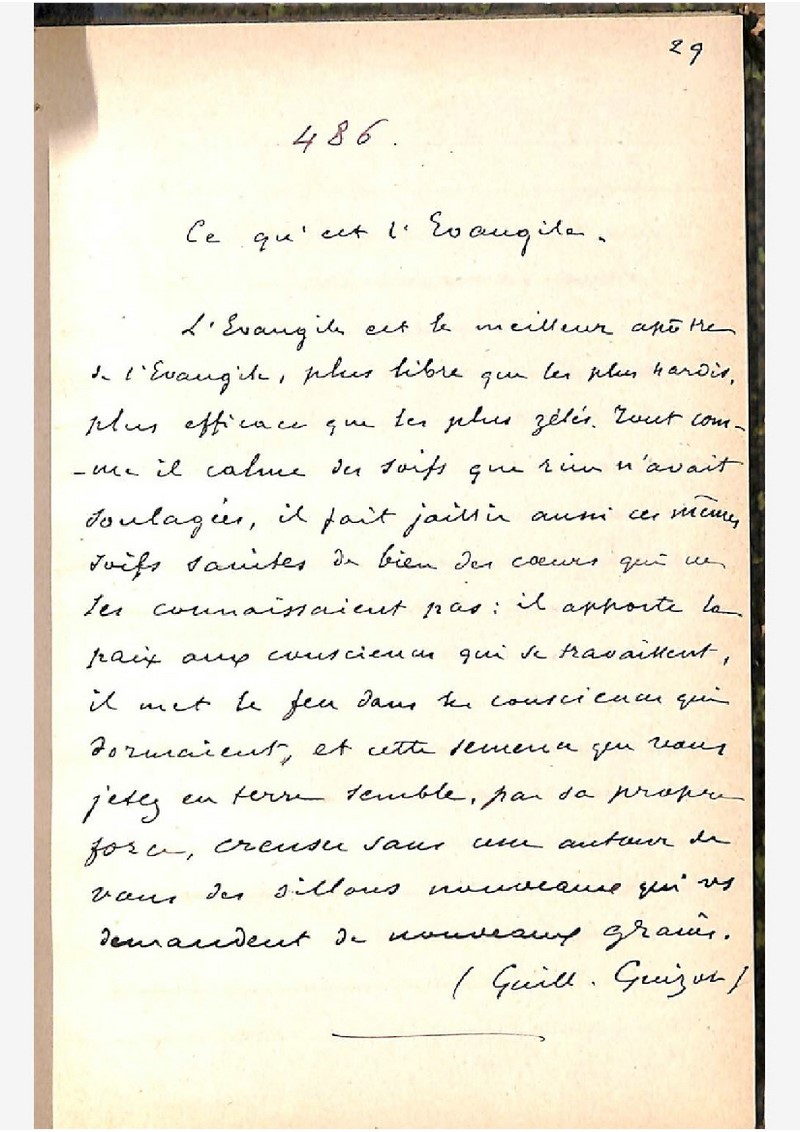 29
486.
Ce qu'est l'Evangile.
L'Evangile est le meilleur apôtre
de l'Evangile, plus libre que les plus hardis,
plus efficace que les plus zélés. Tout com-
-me il calme des soifs que rien n'avait
soulagées, il fait jaillir aussi ces mêmes
soifs saintes de bien des cœurs qui ne
les connaissaient pas : il apporte la
paix aux consciences qui se travaillent,
il met le feu dans les consciences qui
dormaient, et cette semence que vous
jetez en terre semble, par sa propre
force, creuser sans cesse autour de
vous des sillons nouveaux qui vs
demandent de nouveaux grains.
(Guill. Guizot)